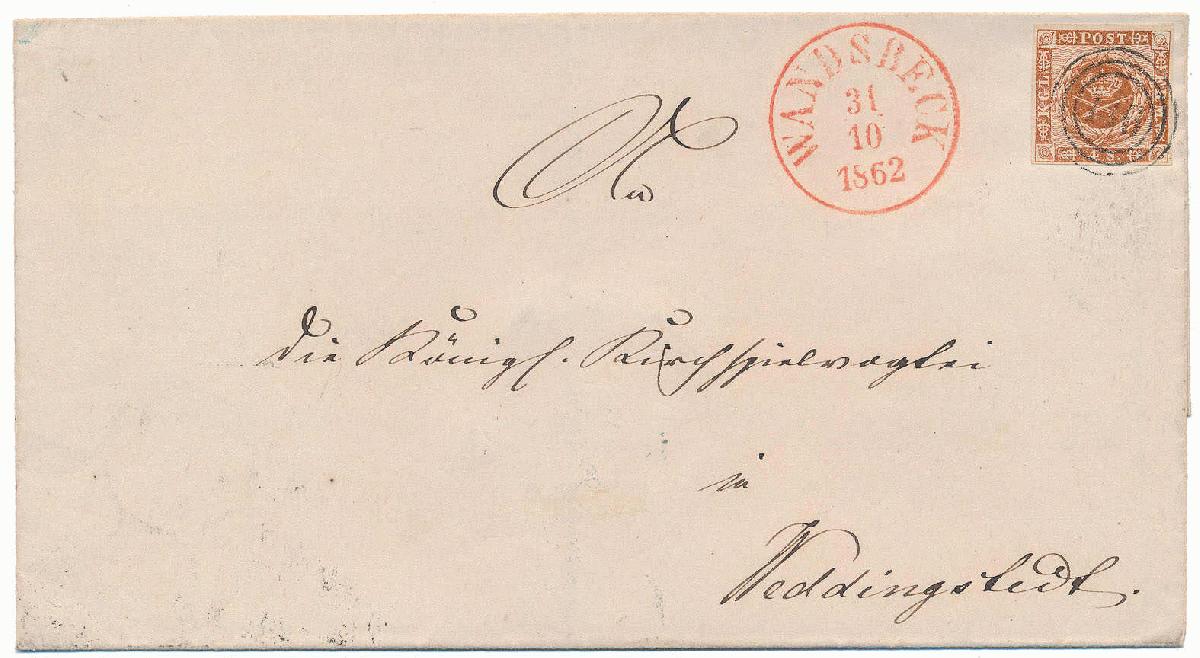 WANDSBECK
31
10
1862
KGL POST
An
die Königl. Kirchspielvogtei
in
Weddingstedt.